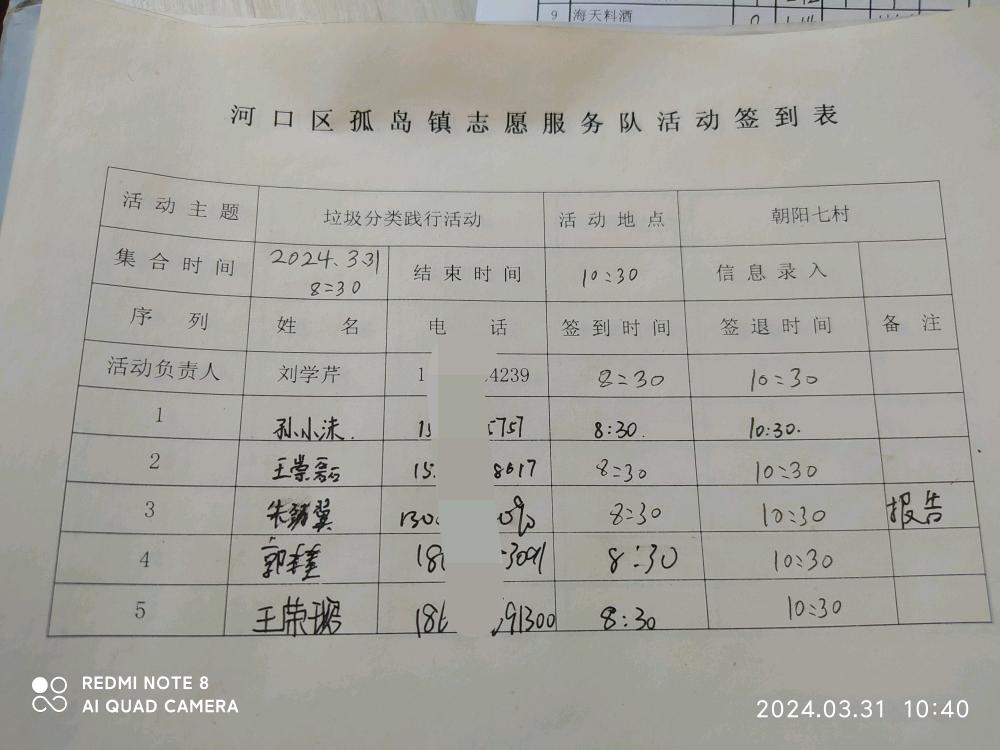 9 海天料酒
河口区孤岛镇志愿服务队活动签到表
活动主题 垃圾分类践行活动 活动地点 朝阳七村
集合时间 2024.3.31 8:30 结束时间 10:30 信息录入
序列 姓名 电话 签到时间 签退时间 备注
活动负责人 刘学芹 1 4239 8:30 10:30
1 孙小沫. 15 5757 8:30. 10:30.
2 王崇磊 15. 8617 8:30 10:30
3 朱 翼 130 8:30 10:30 报告
4 郭 18 3091 8:30 10:30
5 王荣 186 91300 8:30 10:30
REDMI NOTE 8
AI QUAD CAMERA
2024.03.31 10:40